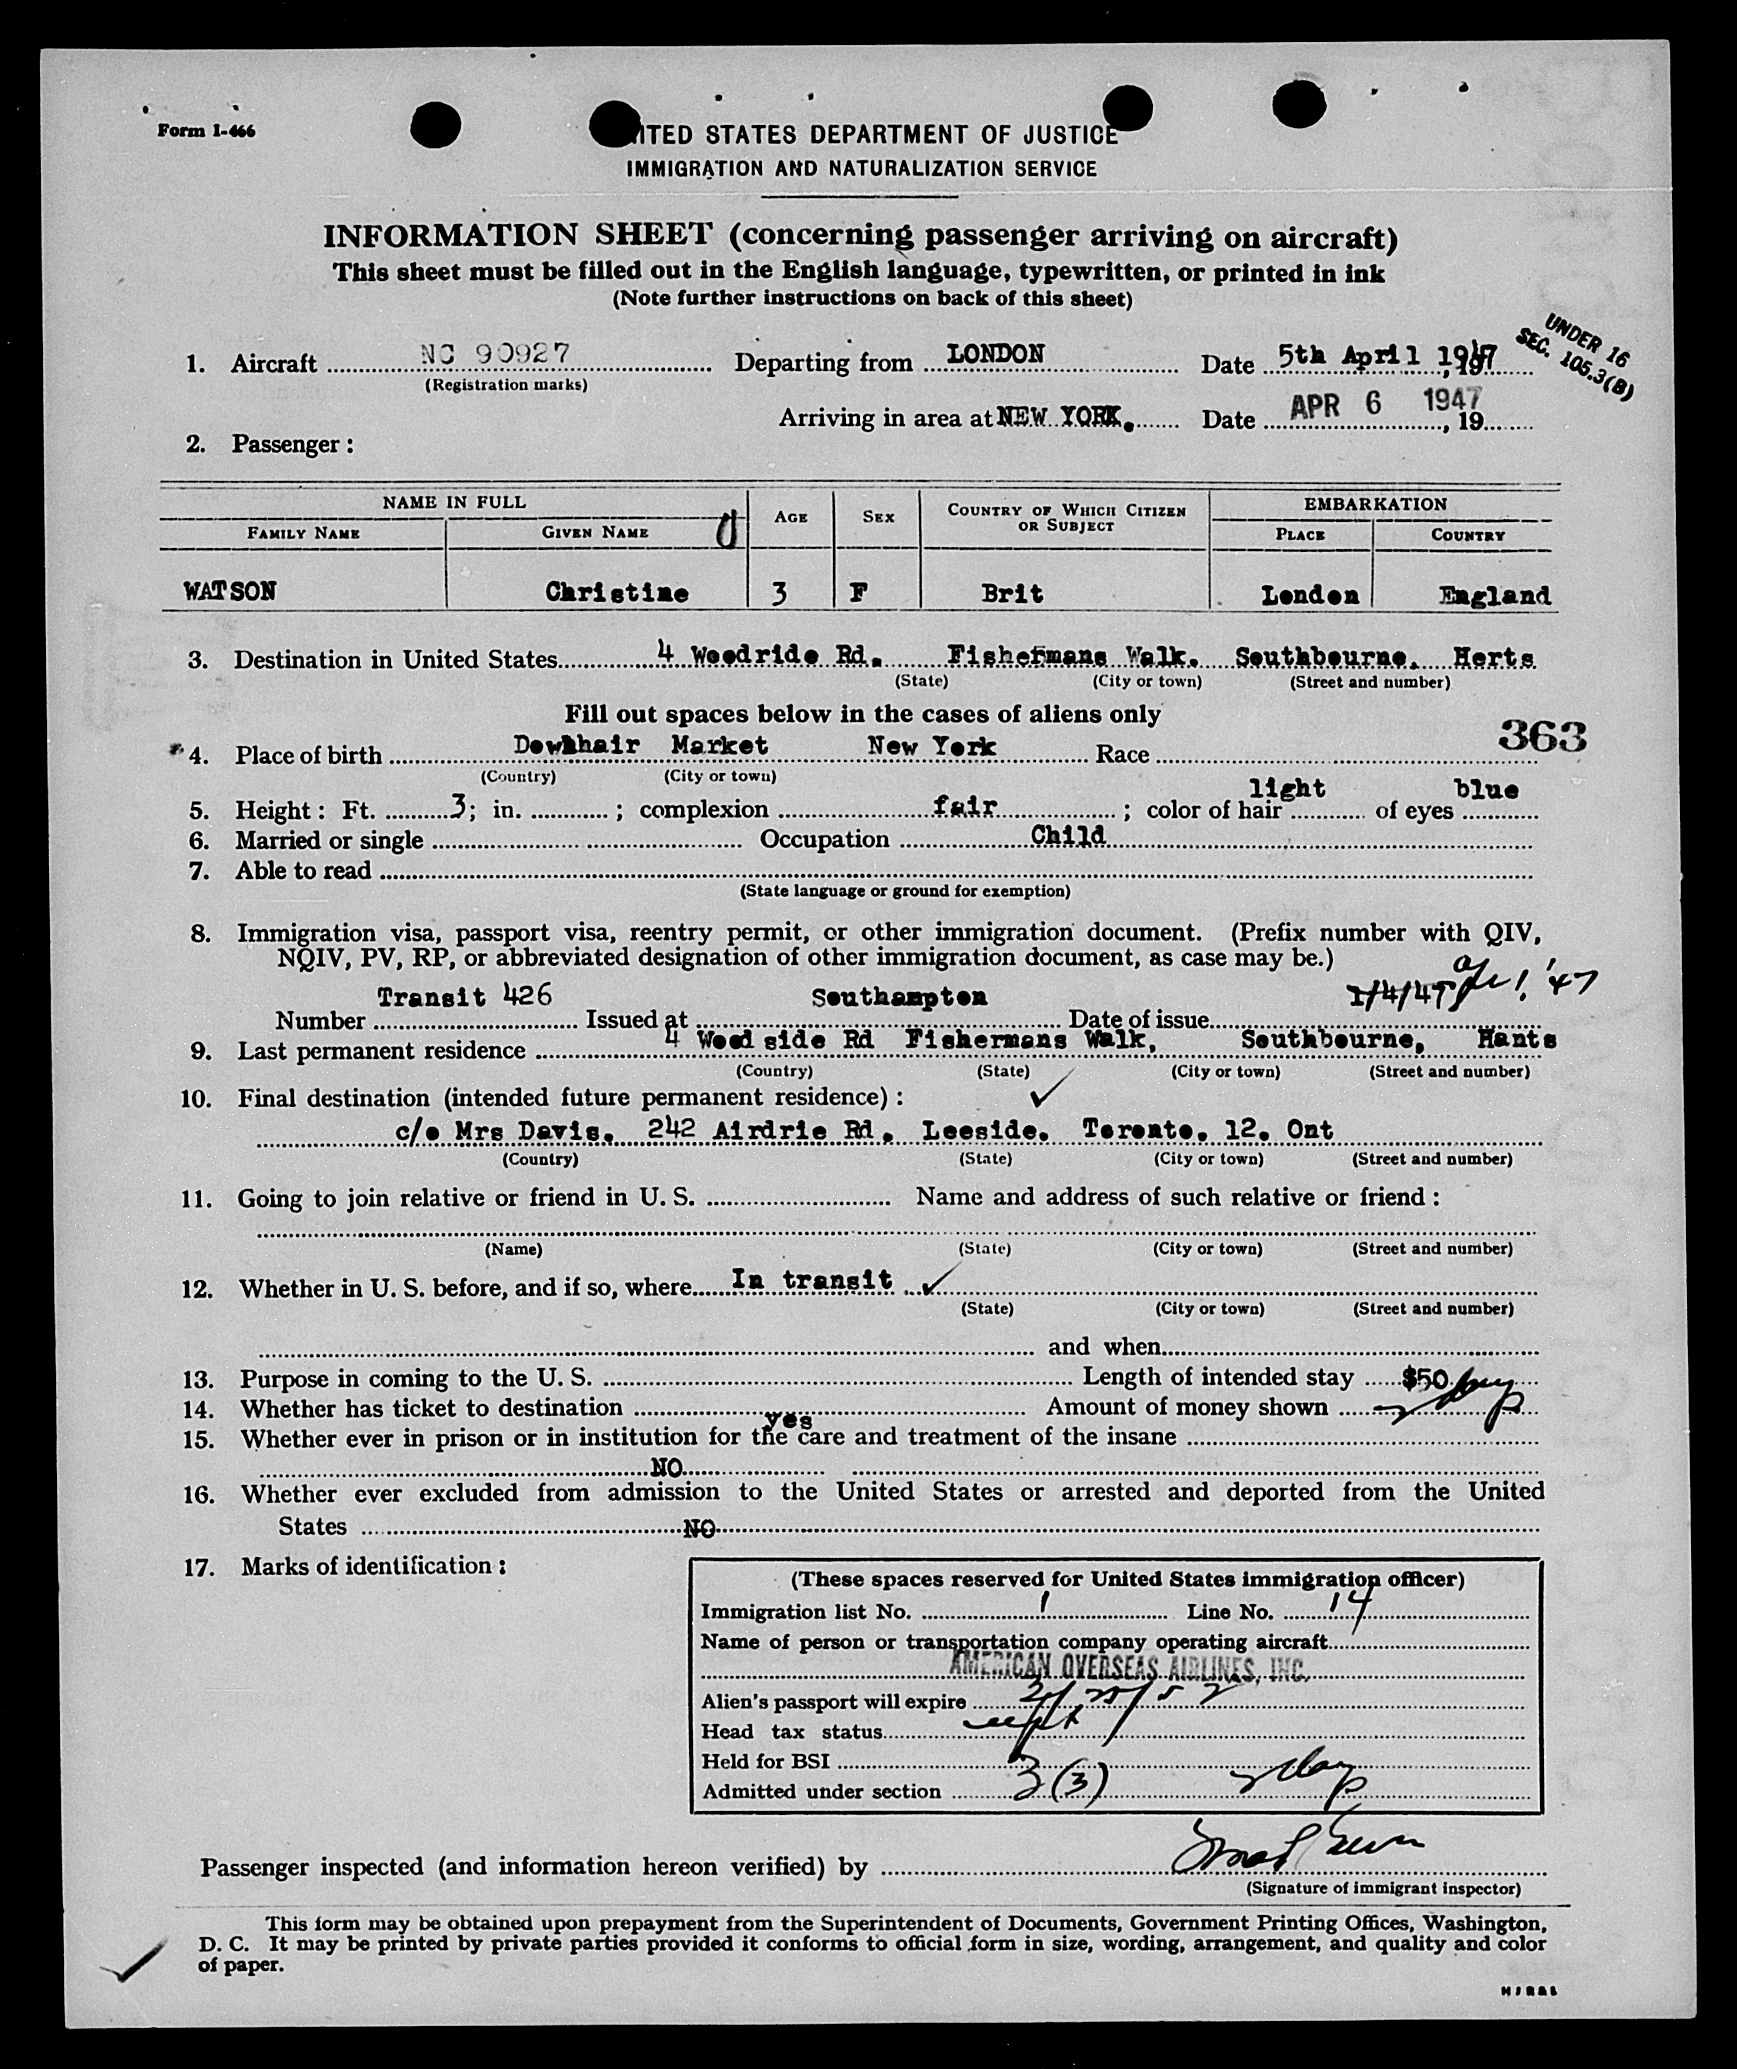 Form I-466
ITED STATES DEPARTMENT OF JUSTICE
IMMIGRATION AND NATURALIZATION SERVICE
INFORMATION SHEET (concerning passenger arriving on aircraft)
This sheet must be filled out in the English language, typewritten, or printed in ink
(Note further instructions on back of this sheet)
UNDER 16
SEC. 105.3(B)
1. Aircraft NC 90927 Departing from LONDON Date 5th April 1947, 19
(Registration marks)
Arriving in area at NEW YORK. Date APR 6 1947, 19
2. Passenger :
NAME IN FULL AGE SEX COUNTRY OF WHICH CITIZEN OR SUBJECT EMBARKATION
FAMILY NAME GIVEN NAME PLACE COUNTRY
WATSON Christine 3 F Brit London England
3. Destination in United States 4 Woodride Rd. Fishermans Walk. Southbourne. Herts
(State) (City or town) (Street and number)
Fill out spaces below in the cases of aliens only
363
4. Place of birth Market New York Race
(Country) (City or town)
5. Height : Ft. 3; in. ; complexion fair ; color of hair light of eyes blue
6. Married or single Occupation Child
7. Able to read
(State language or ground for exemption)
8. Immigration visa, passport visa, reentry permit, or other immigration document. (Prefix number with QIV,
NQIV, PV, RP, or abbreviated designation of other immigration document, as case may be.)
Number Transit 426 Issued at Southampton Date of issue 1/4/47 Apr 1 '47
9. Last permanent residence 4 Wood side Rd Fishermans Walk, Southbourne, Hants
(Country) (State) (City or town) (Street and number)
10. Final destination (intended future permanent residence) :
c/o Mrs Davis. 242 Airdrie Rd. Leeside. Toronto. 12. Ont
(Country) (State) (City or town) (Street and number)
11. Going to join relative or friend in U. S. Name and address of such relative or friend :
(Name) (State) (City or town) (Street and number)
12. Whether in U. S. before, and if so, where In transit
(State) (City or town) (Street and number)
and when
13. Purpose in coming to the U. S. Length of intended stay $50
14. Whether has ticket to destination yes Amount of money shown
15. Whether ever in prison or in institution for the care and treatment of the insane
NO
16. Whether ever excluded from admission to the United States or arrested and deported from the United
States NO
17. Marks of identification :
(These spaces reserved for United States immigration officer)
Immigration list No. 1 Line No. 14
Name of person or transportation company operating aircraft
AMERICAN OVERSEAS AIRLINES, INC.
Alien's passport will expire
Head tax status
Held for BSI
Admitted under section 3(3) 2 days
Passenger inspected (and information hereon verified) by
(Signature of immigrant inspector)
This form may be obtained upon prepayment from the Superintendent of Documents, Government Printing Offices, Washington,
D. C. It may be printed by private parties provided it conforms to official form in size, wording, arrangement, and quality and color
of paper.